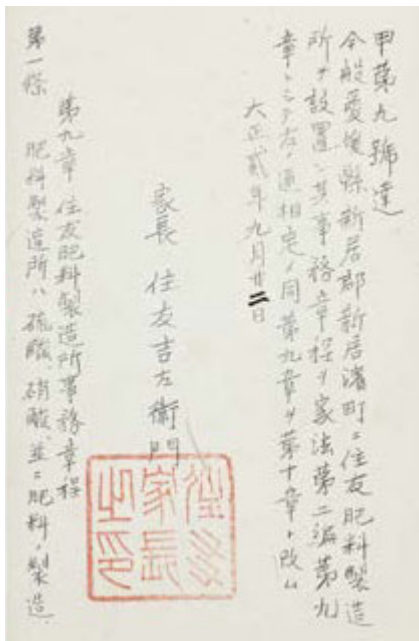 甲第九號達
今般愛媛縣新居郡新居濱町ニ住友肥料製造
所ヲ設置シ其事務章程ヲ家法第二編第九
章トシテ左ノ通相定メ同第九章ヲ第十章ト改ム
大正貳年九月廿二日
家長 住友吉左衛門
住友
家長
之印
第九章 住友肥料製造所事務章程
第一條 肥料製造所ハ硫酸、硝酸、並ニ肥料ノ製造